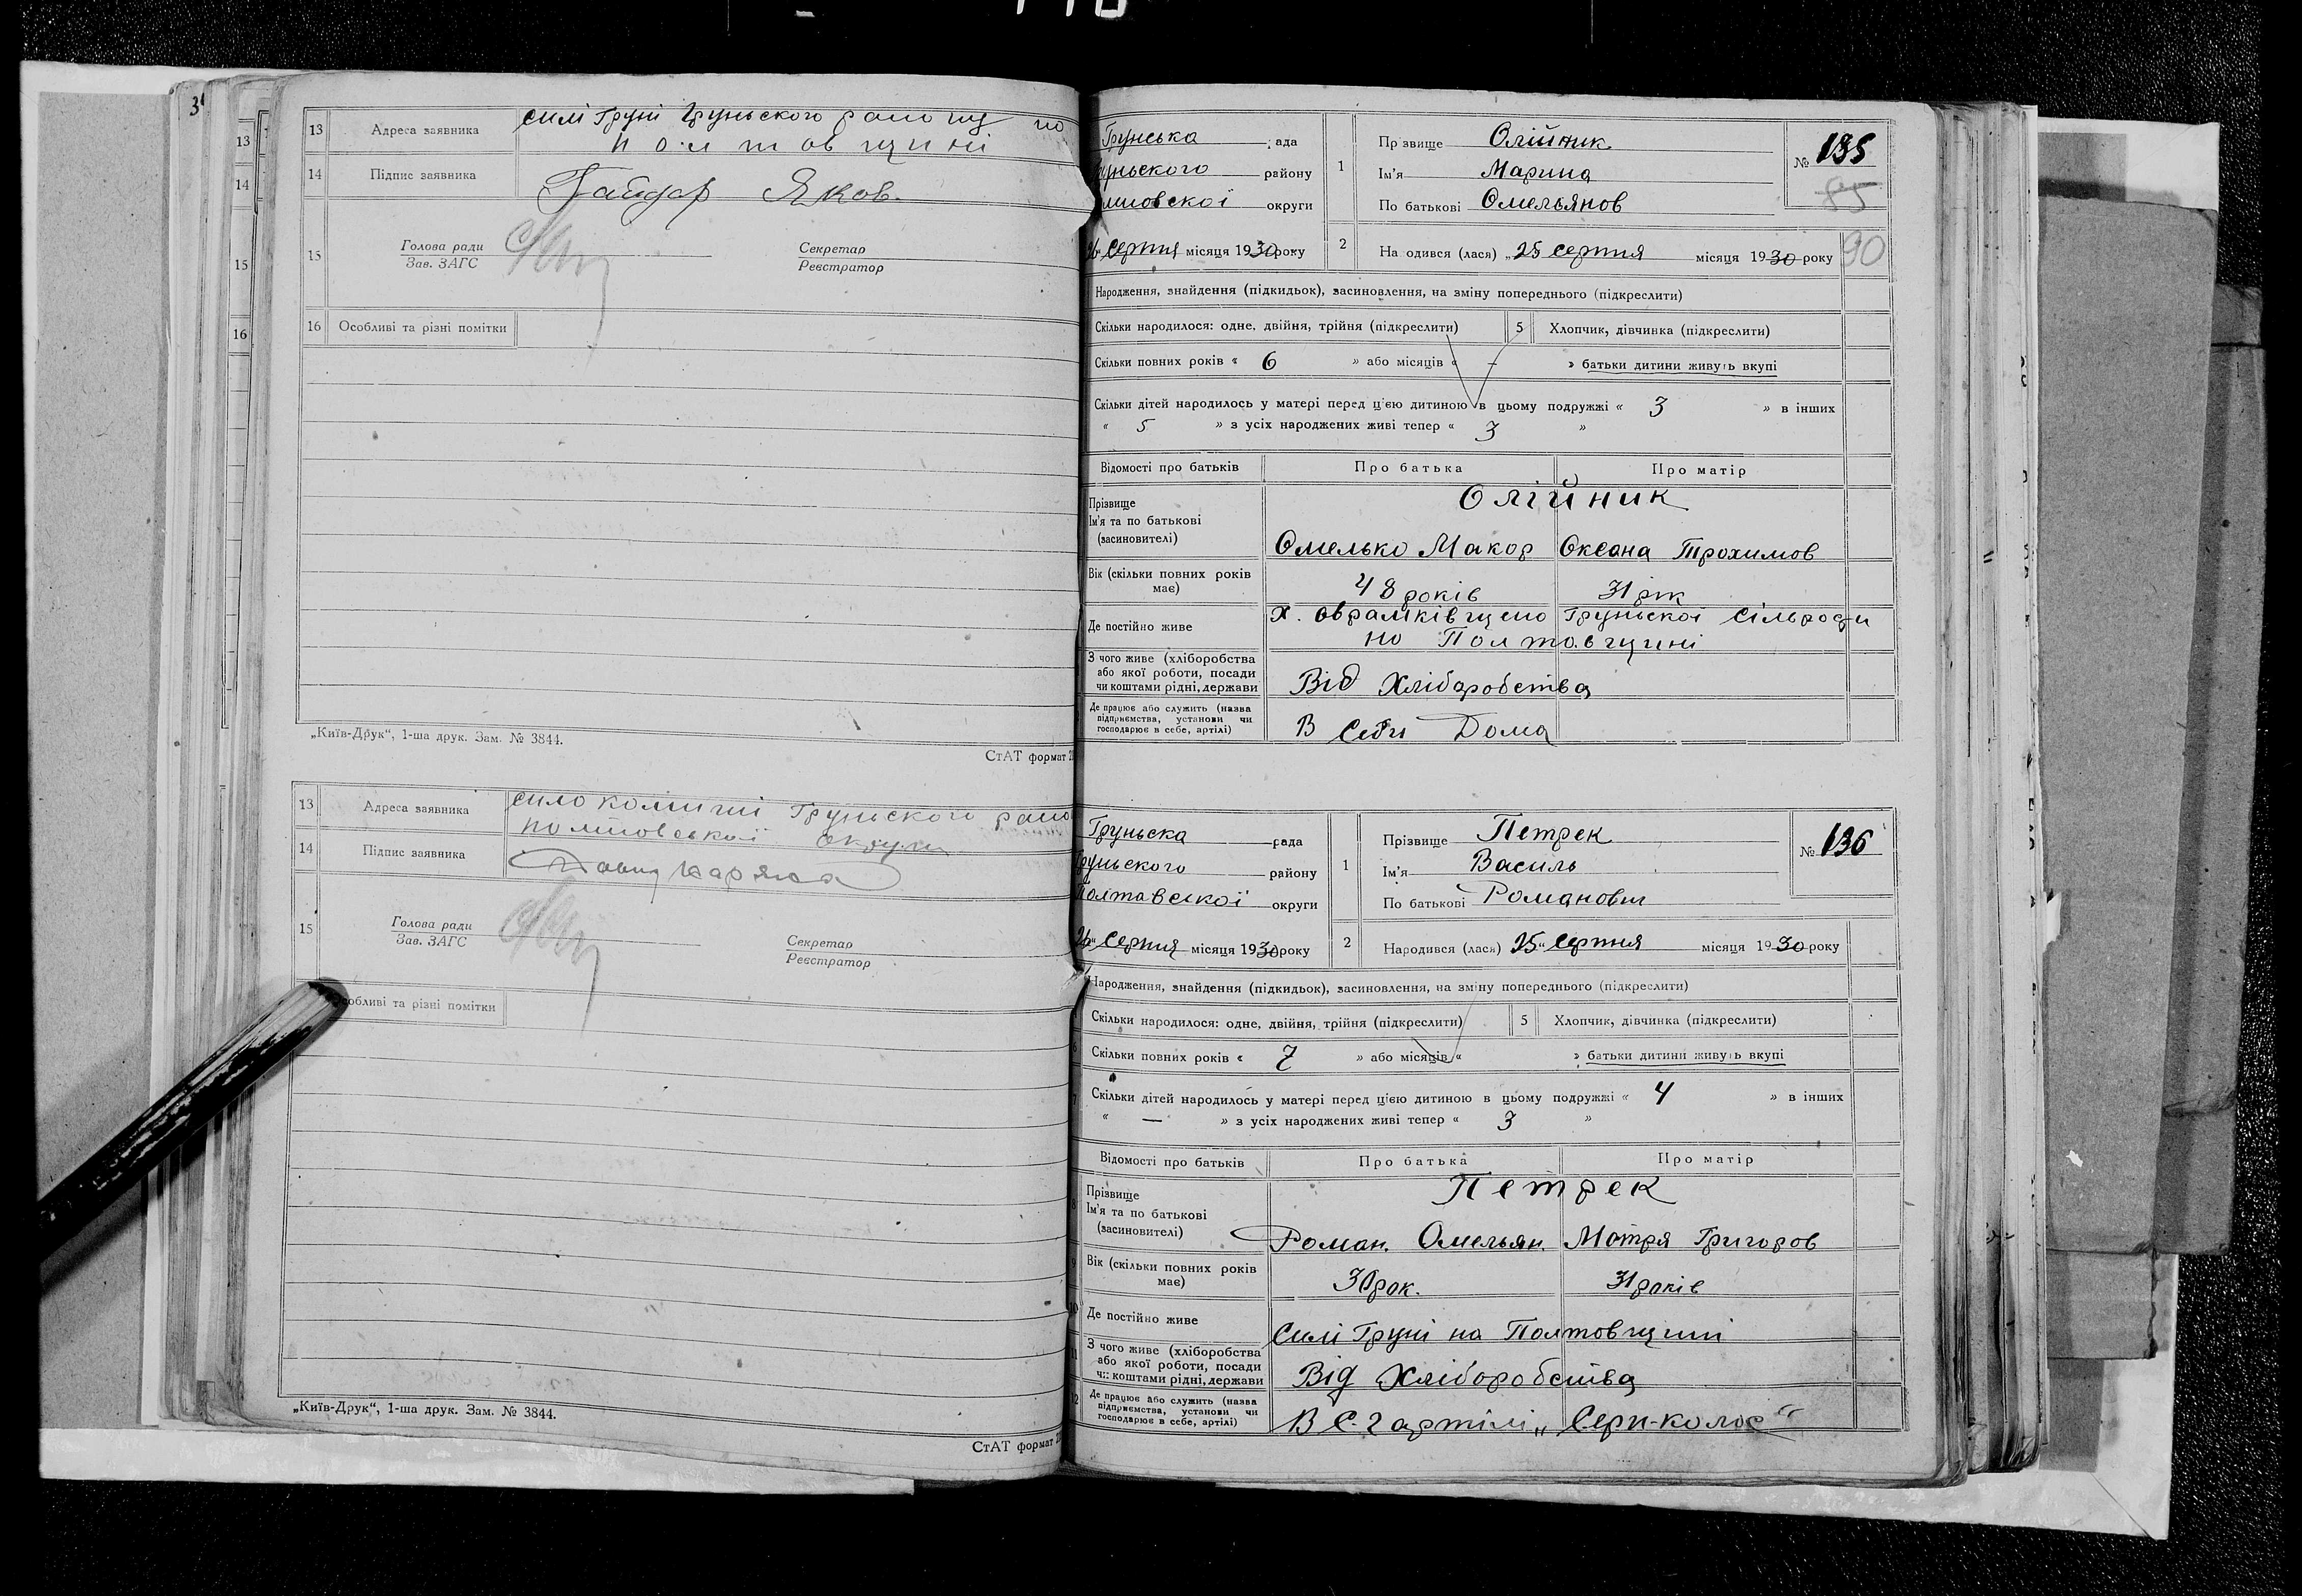 13 Адреса заявника силі Груні Груньского району по
Полтовщині
14 Підпис заявника Гайдар Яков.
15 Голова ради Секретар
Зав. ЗАГС Реєстратор
16 Особливі та різні помітки
„Київ-Друк“, 1-ша друк. Зам. № 3844.
СтАТ формат
13 Адреса заявника село Грунського
Полтовської округи
14 Підпис заявника
15 Голова ради Секретар
Зав. ЗАГС Реєстратор
Особливі та різні помітки
„Київ-Друк“, 1-ша друк. Зам. № 3844.
СтАТ формат
Грунська рада 1 Прзвище Олійник № 135
району Ім'я Марина 85
округи По батькові Омельянов
26 серпня місяця 1930 року 2 На одився (лася) „25 серпня місяця 1930 року 90
Народження, знайдення (підкидьок), засиновлення, на зміну попереднього (підкреслити)
Скільки народилося: одне, двійня, трійня (підкреслити) 5 Хлопчик, дівчинка (підкреслити)
Скільки повних років « 6 » або місяців « — » батьки дитини живуть вкупі
Скільки дітей народилось у матері перед цією дитиною в цьому подружжі « 3 » в інших
« 5 » з усіх народжених живі тепер « 3 »
Відомості про батьків Про батька Про матір
Прізвище Олійник
Ім'я та по батькові
(засиновителі) Омелько Макар Оксана Трохимов
Вік (скільки повних років
має) 48 років 31 рік
Де постійно живе Х. Груньскої сільради
но Полтовщині
З чого живе (хліборобства
або якої роботи, посади
чи коштами рідні, держави Від Хліборобства
Де працює або служить (назва
підприємства, установи чи
господарює в себе, артілі) В Себи Дома
Груньска рада 1 Прізвище Петрек № 136
Груньского району Ім'я Василь
Полтавської округи По батькові Романович
26 серпня місяця 1930 року 2 Народився (лася) 25 серпня місяця 1930 року
Народження, знайдення (підкидьок), засиновлення, на зміну попереднього (підкреслити)
Скільки народилося: одне, двійня, трійня (підкреслити) 5 Хлопчик, дівчинка (підкреслити)
6 Скільки повних років « 7 » або місяців « » батьки дитини живуть вкупі
7 Скільки дітей народилось у матері перед цією дитиною в цьому подружжі « 4 » в інших
« — » з усіх народжених живі тепер « 3 »
Відомості про батьків Про батька Про матір
8 Прізвище Петрек
Ім'я та по батькові
(засиновителі) Роман. Омельян. Мотря Григоров
9 Вік (скільки повних років
має) 30 рок. 31 років
10 Де постійно живе Силі Груні на Полтовщині
11 З чого живе (хліборобства
або якої роботи, посади
чи коштами рідні, держави Від Хліборобства
12 Де працює або служить (назва
підприємства, установи чи
господарює в себе, артілі) В С-Г артілі „Серп-колос“